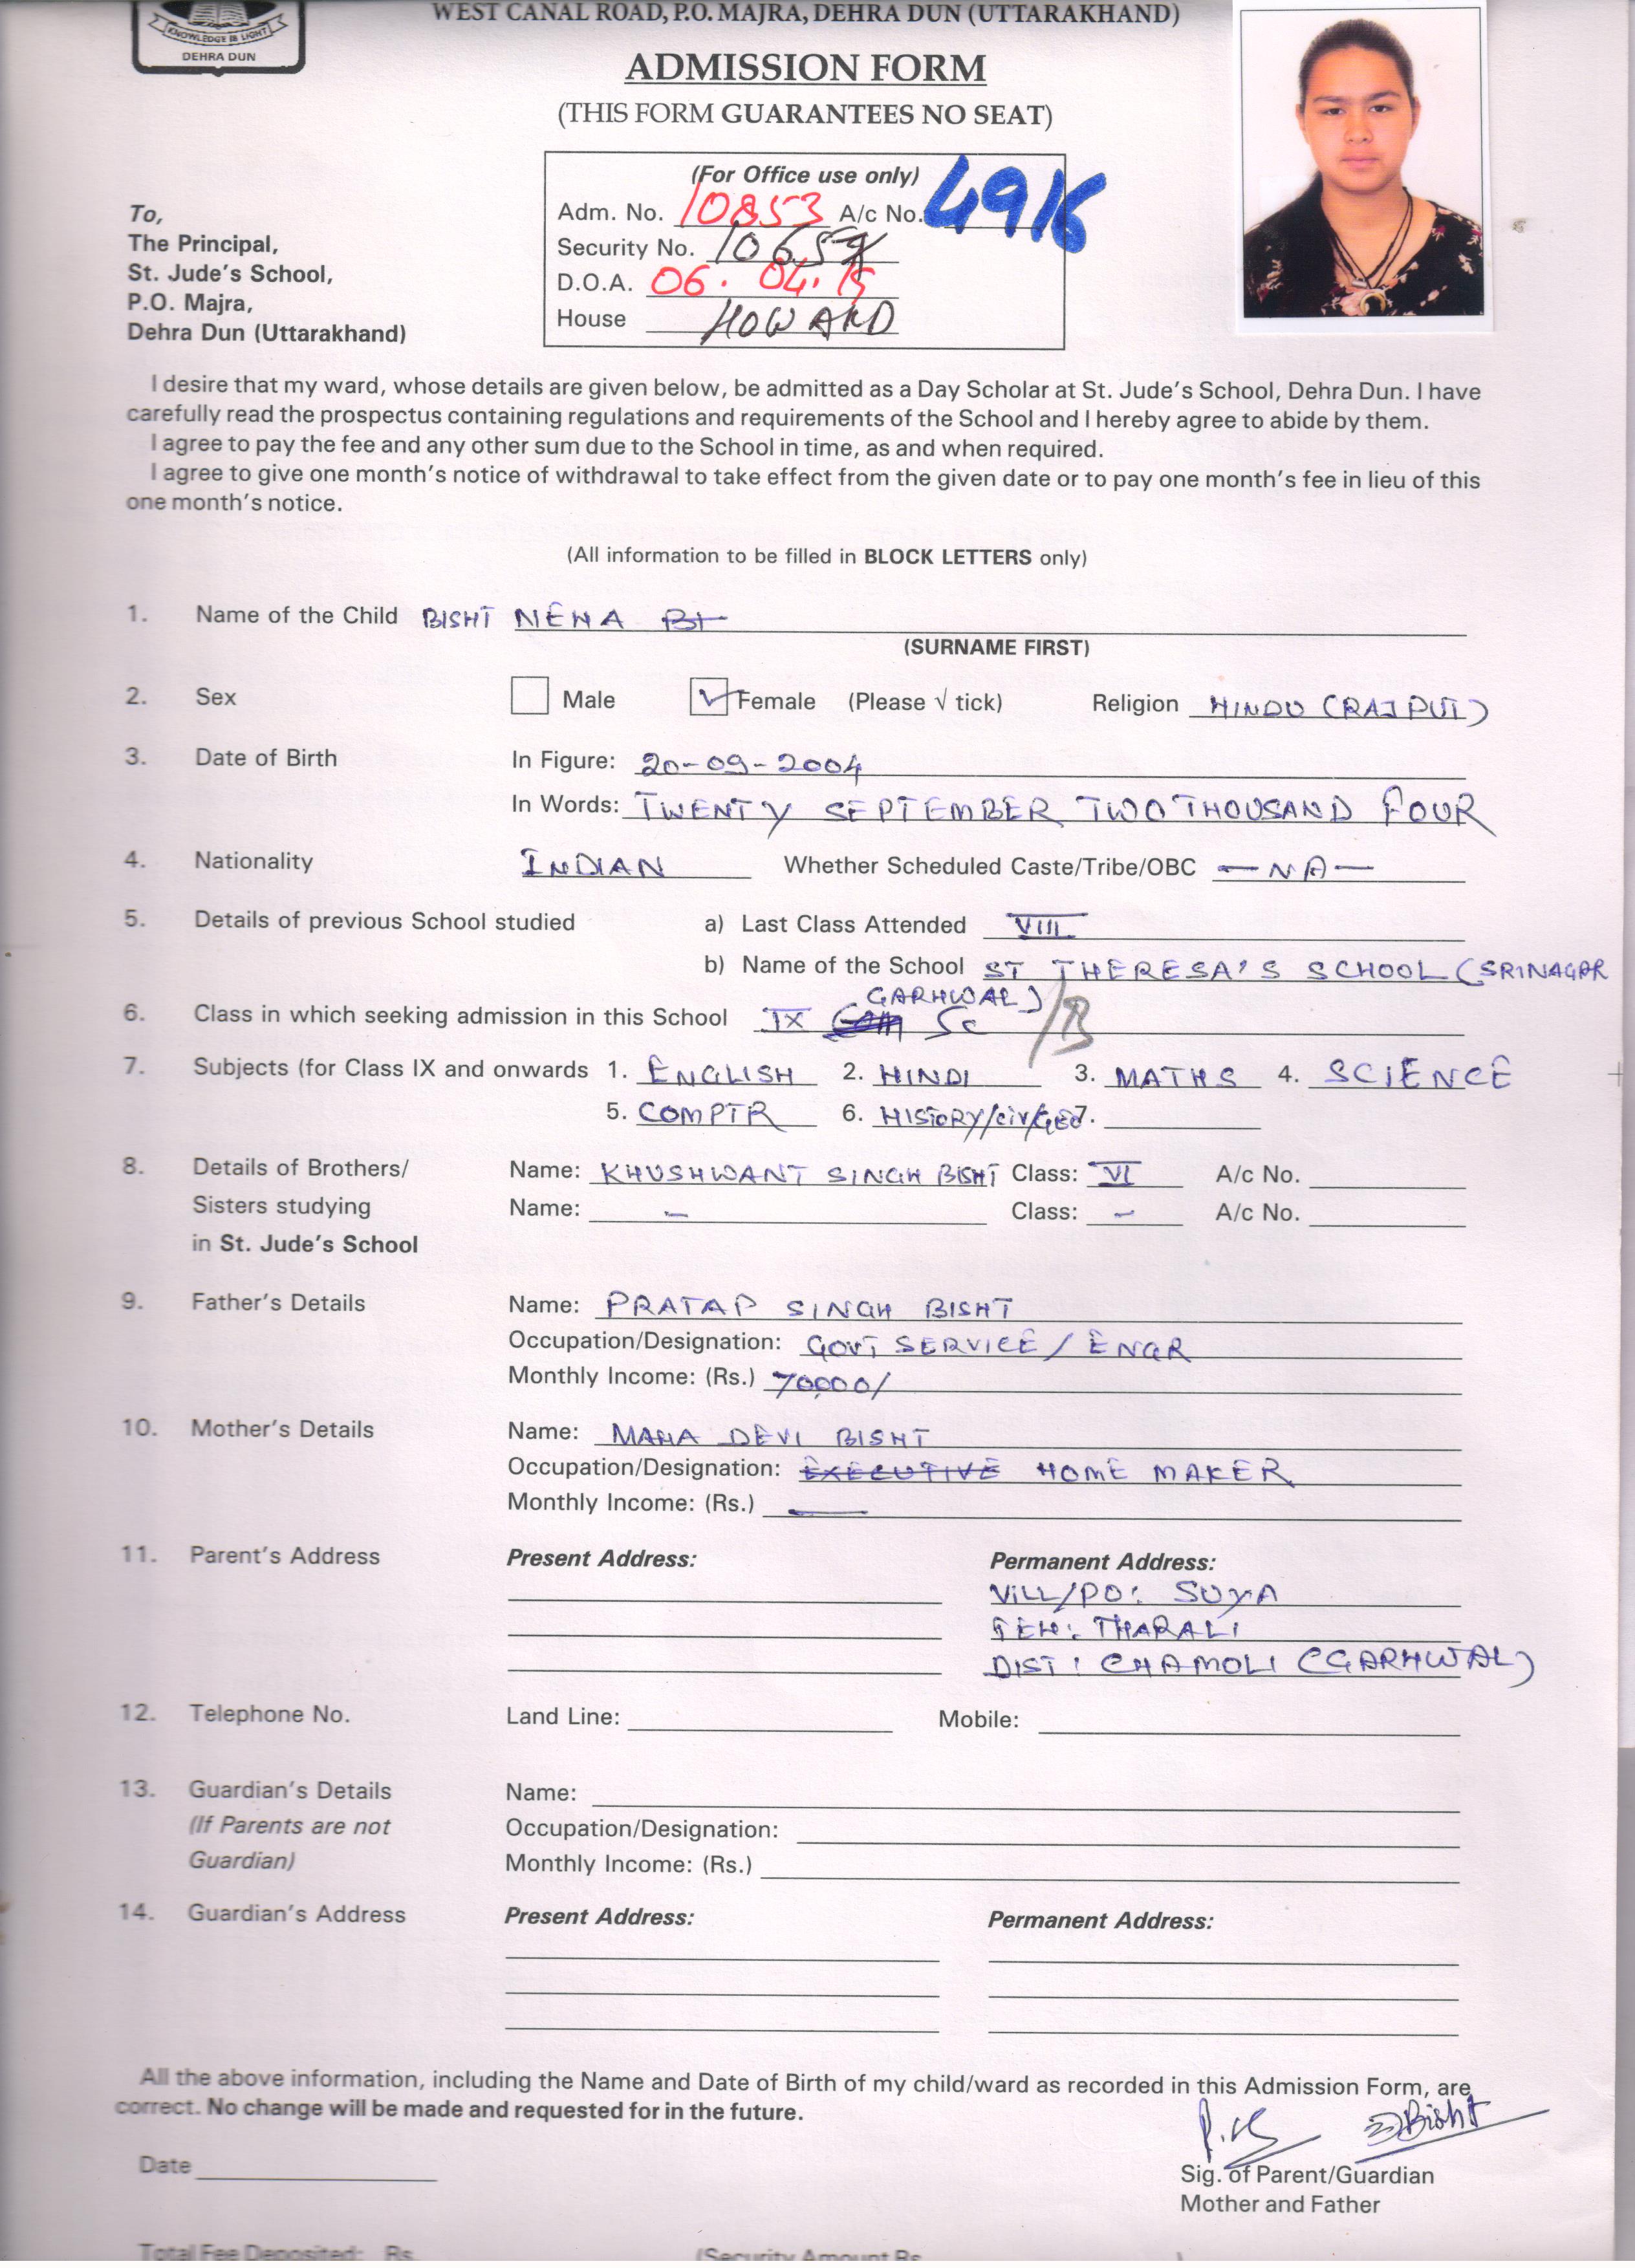 WEST CANAL ROAD, P.O. MAJRA, DEHRA DUN (UTTARAKHAND)
KNOWLEDGE IS LIGHT
DEHRA DUN
ADMISSION FORM
(THIS FORM GUARANTEES NO SEAT)
(For Office use only)
Adm. No. 10853 A/c No. 4916
Security No.
D.O.A. 06.04.15
House HOWARD
To,
The Principal,
St. Jude's School,
P.O. Majra,
Dehra Dun (Uttarakhand)
I desire that my ward, whose details are given below, be admitted as a Day Scholar at St. Jude's School, Dehra Dun. I have
carefully read the prospectus containing regulations and requirements of the School and I hereby agree to abide by them.
I agree to pay the fee and any other sum due to the School in time, as and when required.
I agree to give one month's notice of withdrawal to take effect from the given date or to pay one month's fee in lieu of this
one month's notice.
(All information to be filled in BLOCK LETTERS only)
1. Name of the Child BISHT NEHA
(SURNAME FIRST)
2. Sex Male Female (Please √ tick) Religion HINDU (RAJPUT)
3. Date of Birth In Figure: 20-09-2004
In Words: TWENTY SEPTEMBER TWO THOUSAND FOUR
4. Nationality INDIAN Whether Scheduled Caste/Tribe/OBC — NA —
5. Details of previous School studied a) Last Class Attended VIII
b) Name of the School ST THERESA'S SCHOOL (SRINAGAR
GARHWAL)
6. Class in which seeking admission in this School IX Sc /B
7. Subjects (for Class IX and onwards 1. ENGLISH 2. HINDI 3. MATHS 4. SCIENCE
5. COMPTR 6. HISTORY/CIV/GEO 7.
8. Details of Brothers/ Name: KHUSHWANT SINGH BISHT Class: VI A/c No.
Sisters studying Name: - Class: - A/c No.
in St. Jude's School
9. Father's Details Name: PRATAP SINGH BISHT
Occupation/Designation: GOVT SERVICE / ENGR
Monthly Income: (Rs.) 70000/
10. Mother's Details Name: MAHA DEVI BISHT
Occupation/Designation: EXECUTIVE HOME MAKER
Monthly Income: (Rs.) —
11. Parent's Address Present Address: Permanent Address:
VILL/PO: SUYA
TEH: THARALI
DIST: CHAMOLI (GARHWAL)
12. Telephone No. Land Line: Mobile:
13. Guardian's Details Name:
(If Parents are not Occupation/Designation:
Guardian) Monthly Income: (Rs.)
14. Guardian's Address Present Address: Permanent Address:
All the above information, including the Name and Date of Birth of my child/ward as recorded in this Admission Form, are
correct. No change will be made and requested for in the future.
Bisht
Date
Sig. of Parent/Guardian
Mother and Father
Total Fee Deposited: Rs. (Security Amount Rs. )